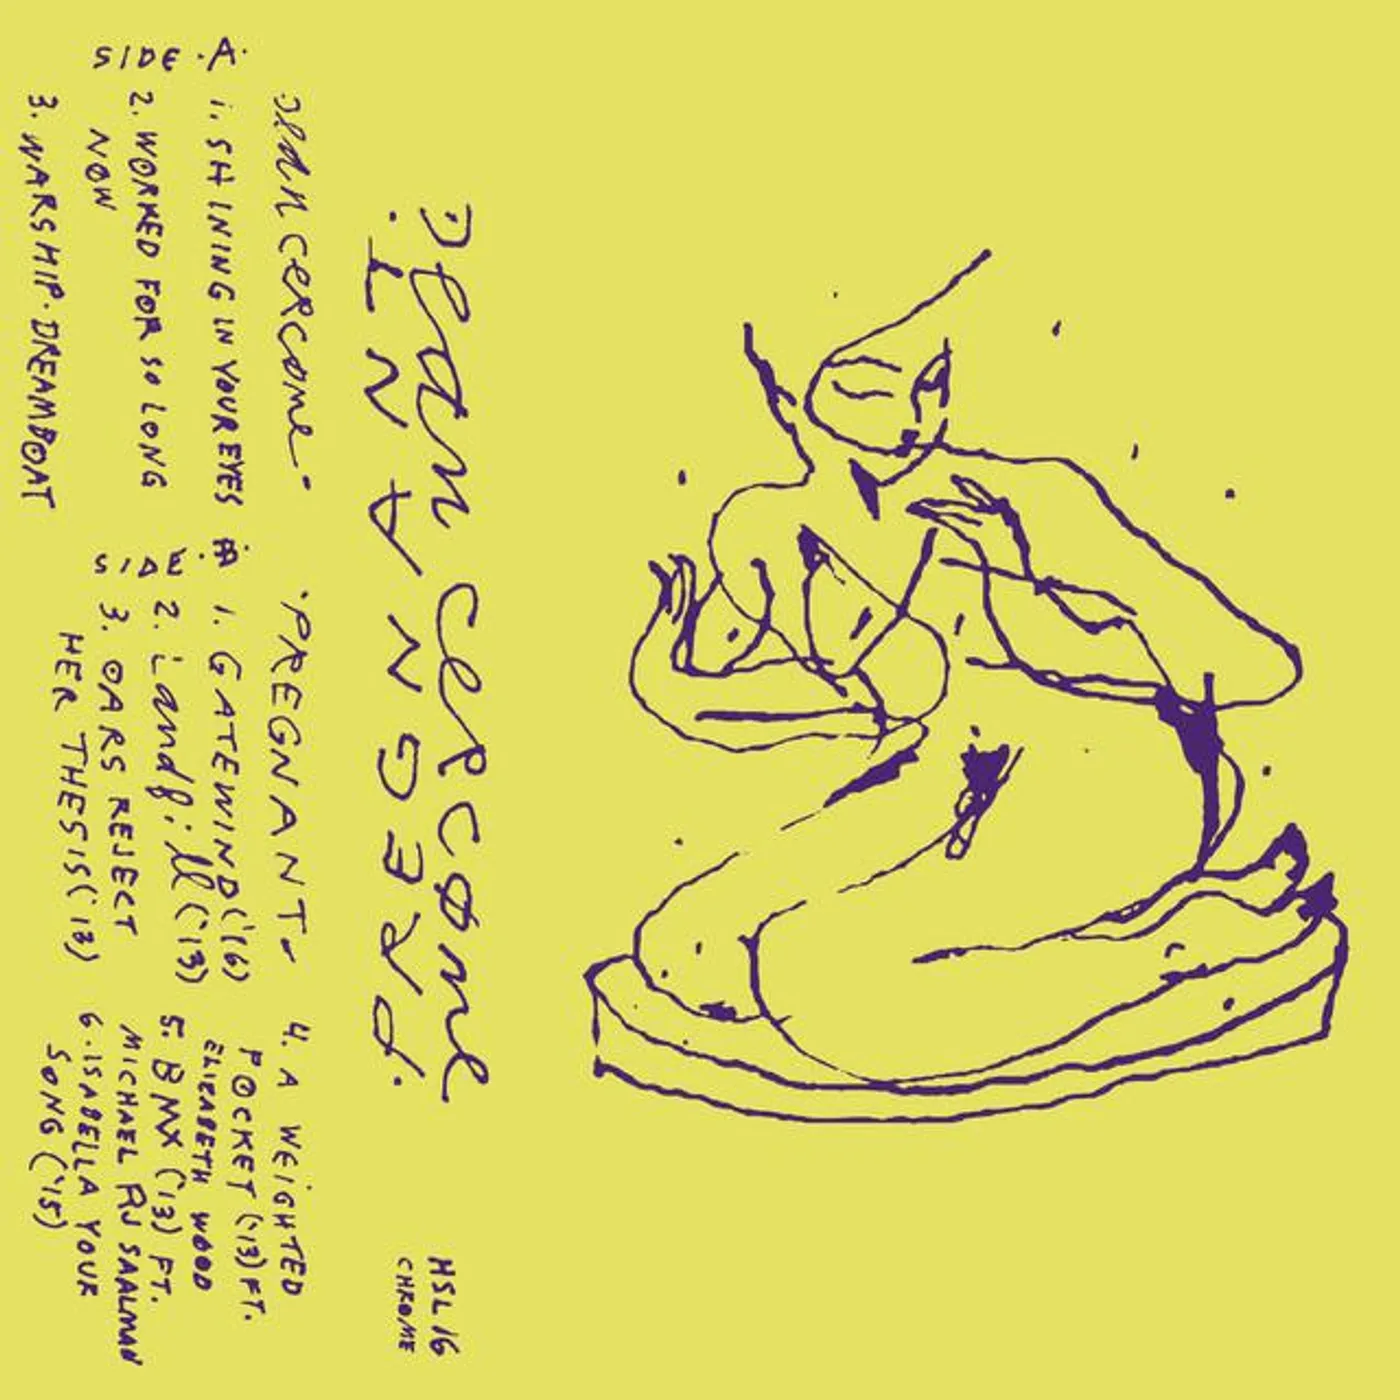 Dean Cercone
HSL 16
CHROME
Dean Cercone-
SIDE .A.
1. SHINING IN YOUR EYES
2. WORKED FOR SO LONG
NOW
3. WARSHIP. DREAMBOAT
'PREGNANT-
SIDE .B
1. GATEWIND ('16)
2. Landfill ('13)
3. OARS REJECT
HER THESIS ('13)
4. A WEIGHTED
POCKET ('13) FT.
ELIZABETH WOOD
5. BMX ('13) FT.
MICHAEL RJ SAALMAN
6. ISABELLA YOUR
SONG ('15)